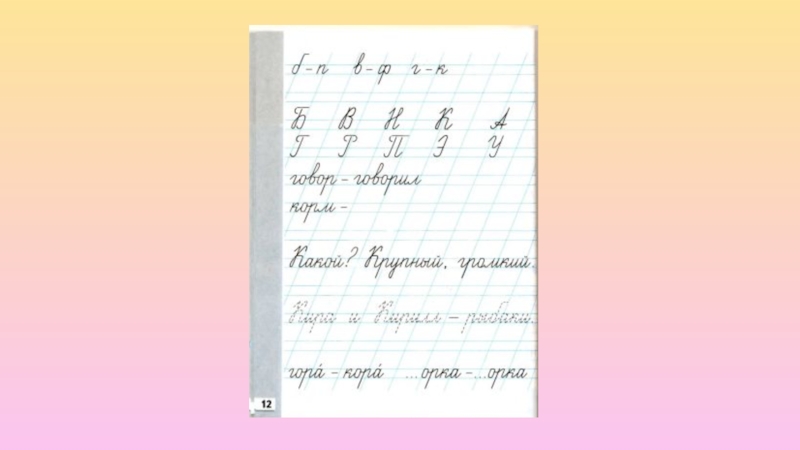 б – п в – ф г – к
Б В Н К А
Г Р П Э У
говор – говорил
корм –
Какой? Крупный, громкий.
Кира и Кирилл – рыбаки.
гора́ – кора́ ...орка – ...орка
12